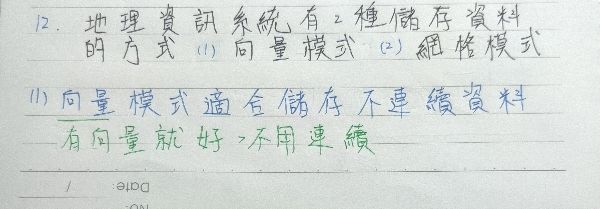 12. 地理資訊系統有2種儲存資料
的方式 (1) 向量模式 (2) 網格模式
(1) 向量模式適合儲存不連續資料
有向量就好,不用連續
Date: /
No: